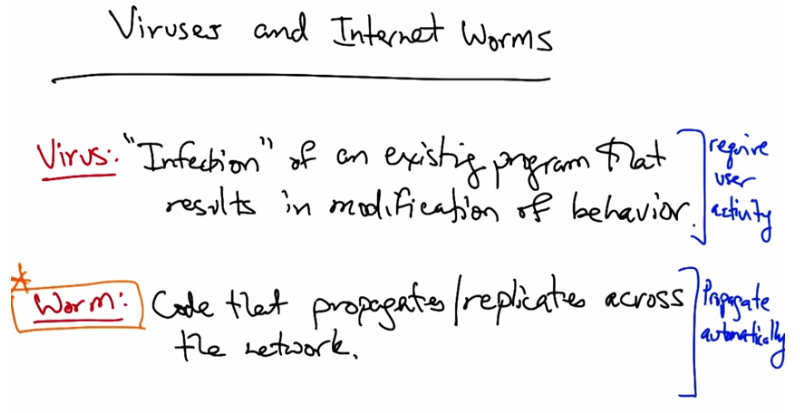 Viruses and Internet Worms
Virus: "Infection" of an existing program that
results in modification of behavior.
require
user
activity
* Worm: Code that propagates/replicates across
the network.
Propagate
automatically